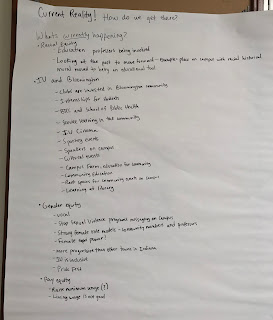 Current Reality! How do we get there?
What's currently happening?
- Racial Equity
- Education professors being involved
- Looking at the past to move forward - 
mural moved to help in educational tool
- IU and Bloomington
- Clubs are involved in Bloomington community
- Internships for students
- and School of Public Health
- Service learning in the community
- IU Cinema
- Sporting events
- Speakers on campus
- Cultural events
- Campus Farm, education for community
- Community Education
- Rent spaces for community events on campus
- Learning at library
- Gender equity
- Vocal
- Stop Sexual Violence programs messaging on campus
- Strong female role models - community members and professors
- Female
- more progressive than other towns in Indiana
- IU is inclusive
- Pride Fest
- Pay equity
- minimum wage (?)
- Living wage is our goal